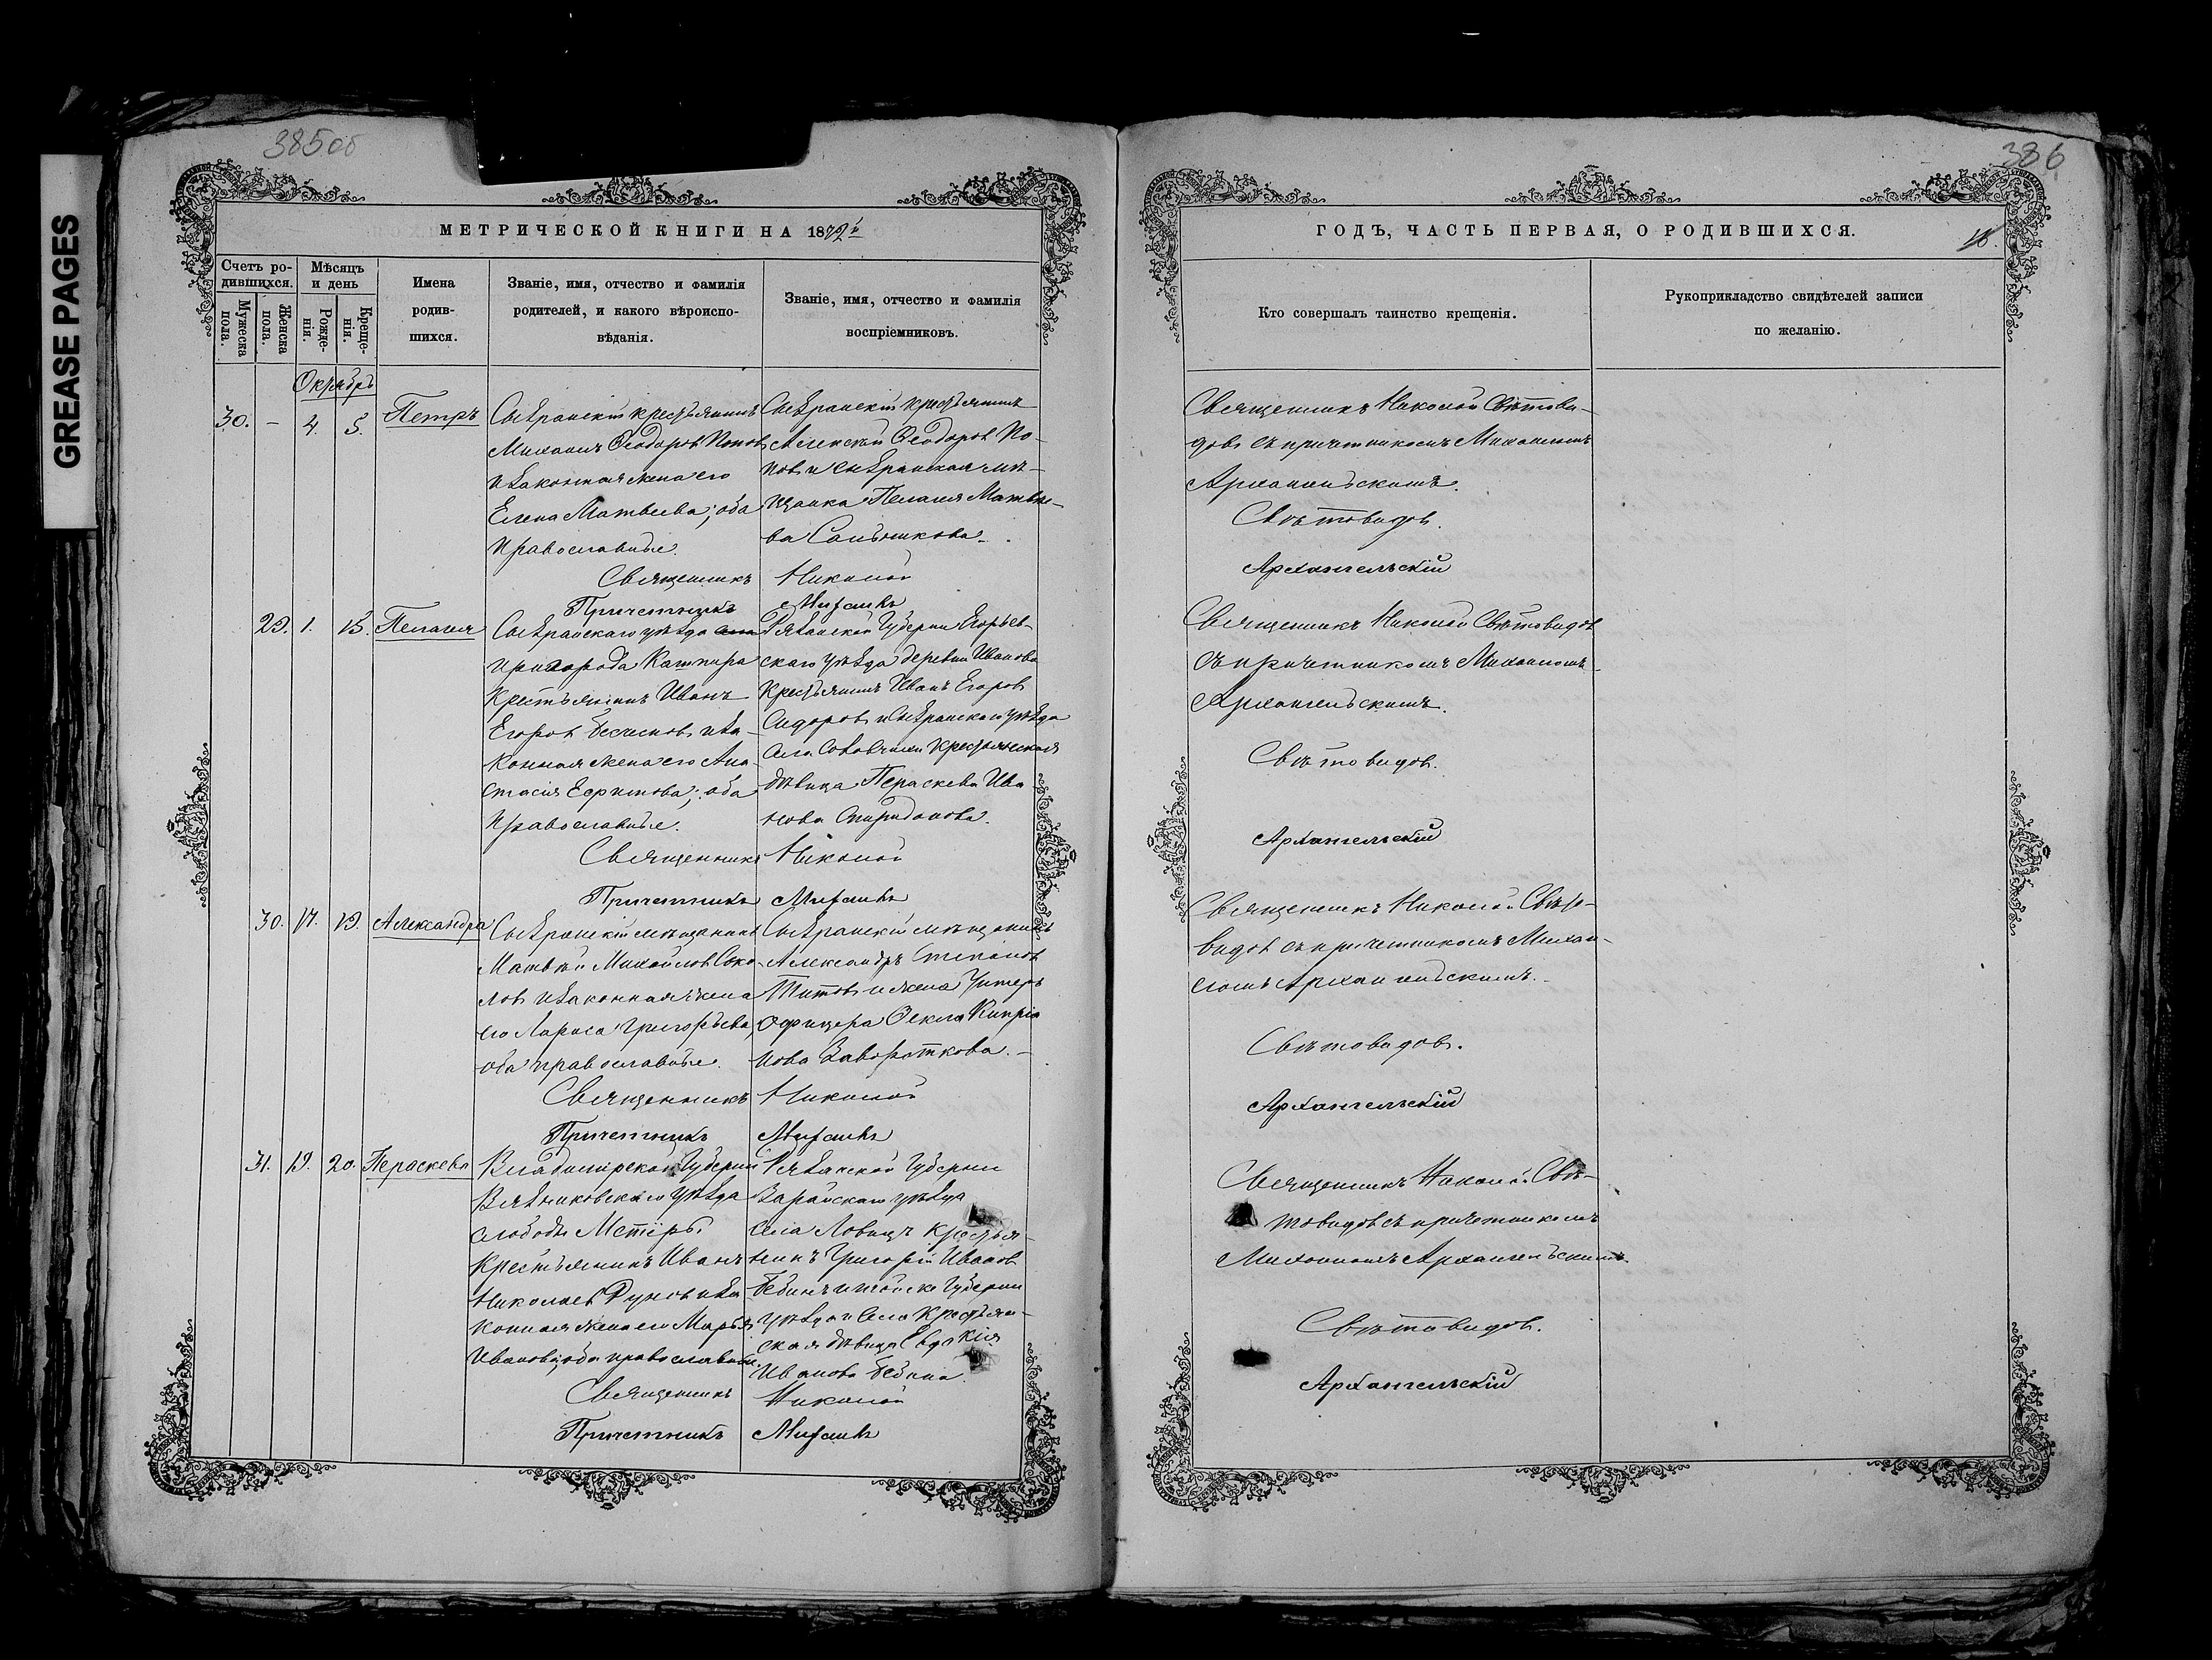 GREASE PAGES
385об
МЕТРИЧЕСКОЙ КНИГИ НА 1872й
Счетъ ро-
дившихся.
Мужеска
пола.
Женска
пола.
Мѣсяцъ
и день
Рожде-
нія.
Креще-
нія.
Имена
родив-
шихся.
Званіе, имя, отчество и фамилія
родителей, и какого вѣроиспо-
вѣданія.
Званіе, имя, отчество и фамилія
воспріемниковъ.
Октябрь
30. – 4. 5. Петръ
Сызранскій крестьянинъ
Михаилъ Ѳеодоровъ Поповъ
и законная жена его
Елена Матвеева; оба
православные.
Сызранскій крестьянинъ
Алексѣй Ѳеодоровъ По-
повъ и сызранская мѣ-
щанка Пелагея Матвѣе-
ва Сальникова.
Священникъ Николай
Причетникъ Михаилъ
29. 1. 15. Пелагея
Сызранскаго уѣзда
пригорода Кашпира
крестьянинъ Иванъ
Егоровъ и за-
конная жена его Ана-
стасія Ефимова; оба
православные.
Рязанской Губерніи Егорьев-
скаго уѣзда деревни Иванова
крестьянинъ Иванъ Егоровъ
Сидоровъ и Сызранскаго уѣзда
села крестьянская
дѣвица Параскева Ива
нова Спиридонова.
Священникъ Николай
Причетникъ Михаилъ
30. 17. 19. Александра
Сызранскій мѣщанинъ
Матвѣй Михайловъ Соко-
ловъ и законная жена
его Лариса Григорьева,
оба православные.
Сызранскій мѣщанинъ
Александръ Степановъ
Титовъ и жена Унтеръ
Офицера Ѳекла Кипріа
нова Завороткова.
Священникъ Николай
Причетникъ Михаилъ
31. 19. 20. Параскева
Владимірской Губерніи
Вязниковскаго уѣзда
слободы Мстёры
крестьянинъ Иванъ
Николаевъ и за
конная жена его Марья
Иванова, оба православные.
Рязанской Губерніи
Зарайскаго уѣзда
села Ловецъ крестья-
нинъ Григорій Ивановъ
Бединъ и той же Губерніи
уѣзда и села крестьян-
ская дѣвица Евдокія
Иванова Бедина.
Священникъ Николай
Причетникъ Михаилъ
386
ГОДЪ, ЧАСТЬ ПЕРВАЯ, О РОДИВШИХСЯ.
Кто совершалъ таинство крещенія.
Рукоприкладство свидѣтелей записи
по желанію.
Священникъ Николай Свѣтови-
довъ съ причетникомъ Михаиломъ
Архангельскимъ.
Свѣтовидовъ.
Архангельскій
Священникъ Николай Свѣтовидовъ
съ причетникомъ Михаиломъ
Архангельскимъ.
Свѣтовидовъ.
Архангельскій
Священникъ Николай Свѣто-
видовъ съ причетникомъ Михаи-
ломъ Архангельскимъ.
Свѣтовидовъ.
Архангельскій
Священникъ Николай Свѣ-
товидовъ съ причетникомъ
Михаиломъ Архангельскимъ.
Свѣтовидовъ.
Архангельскій